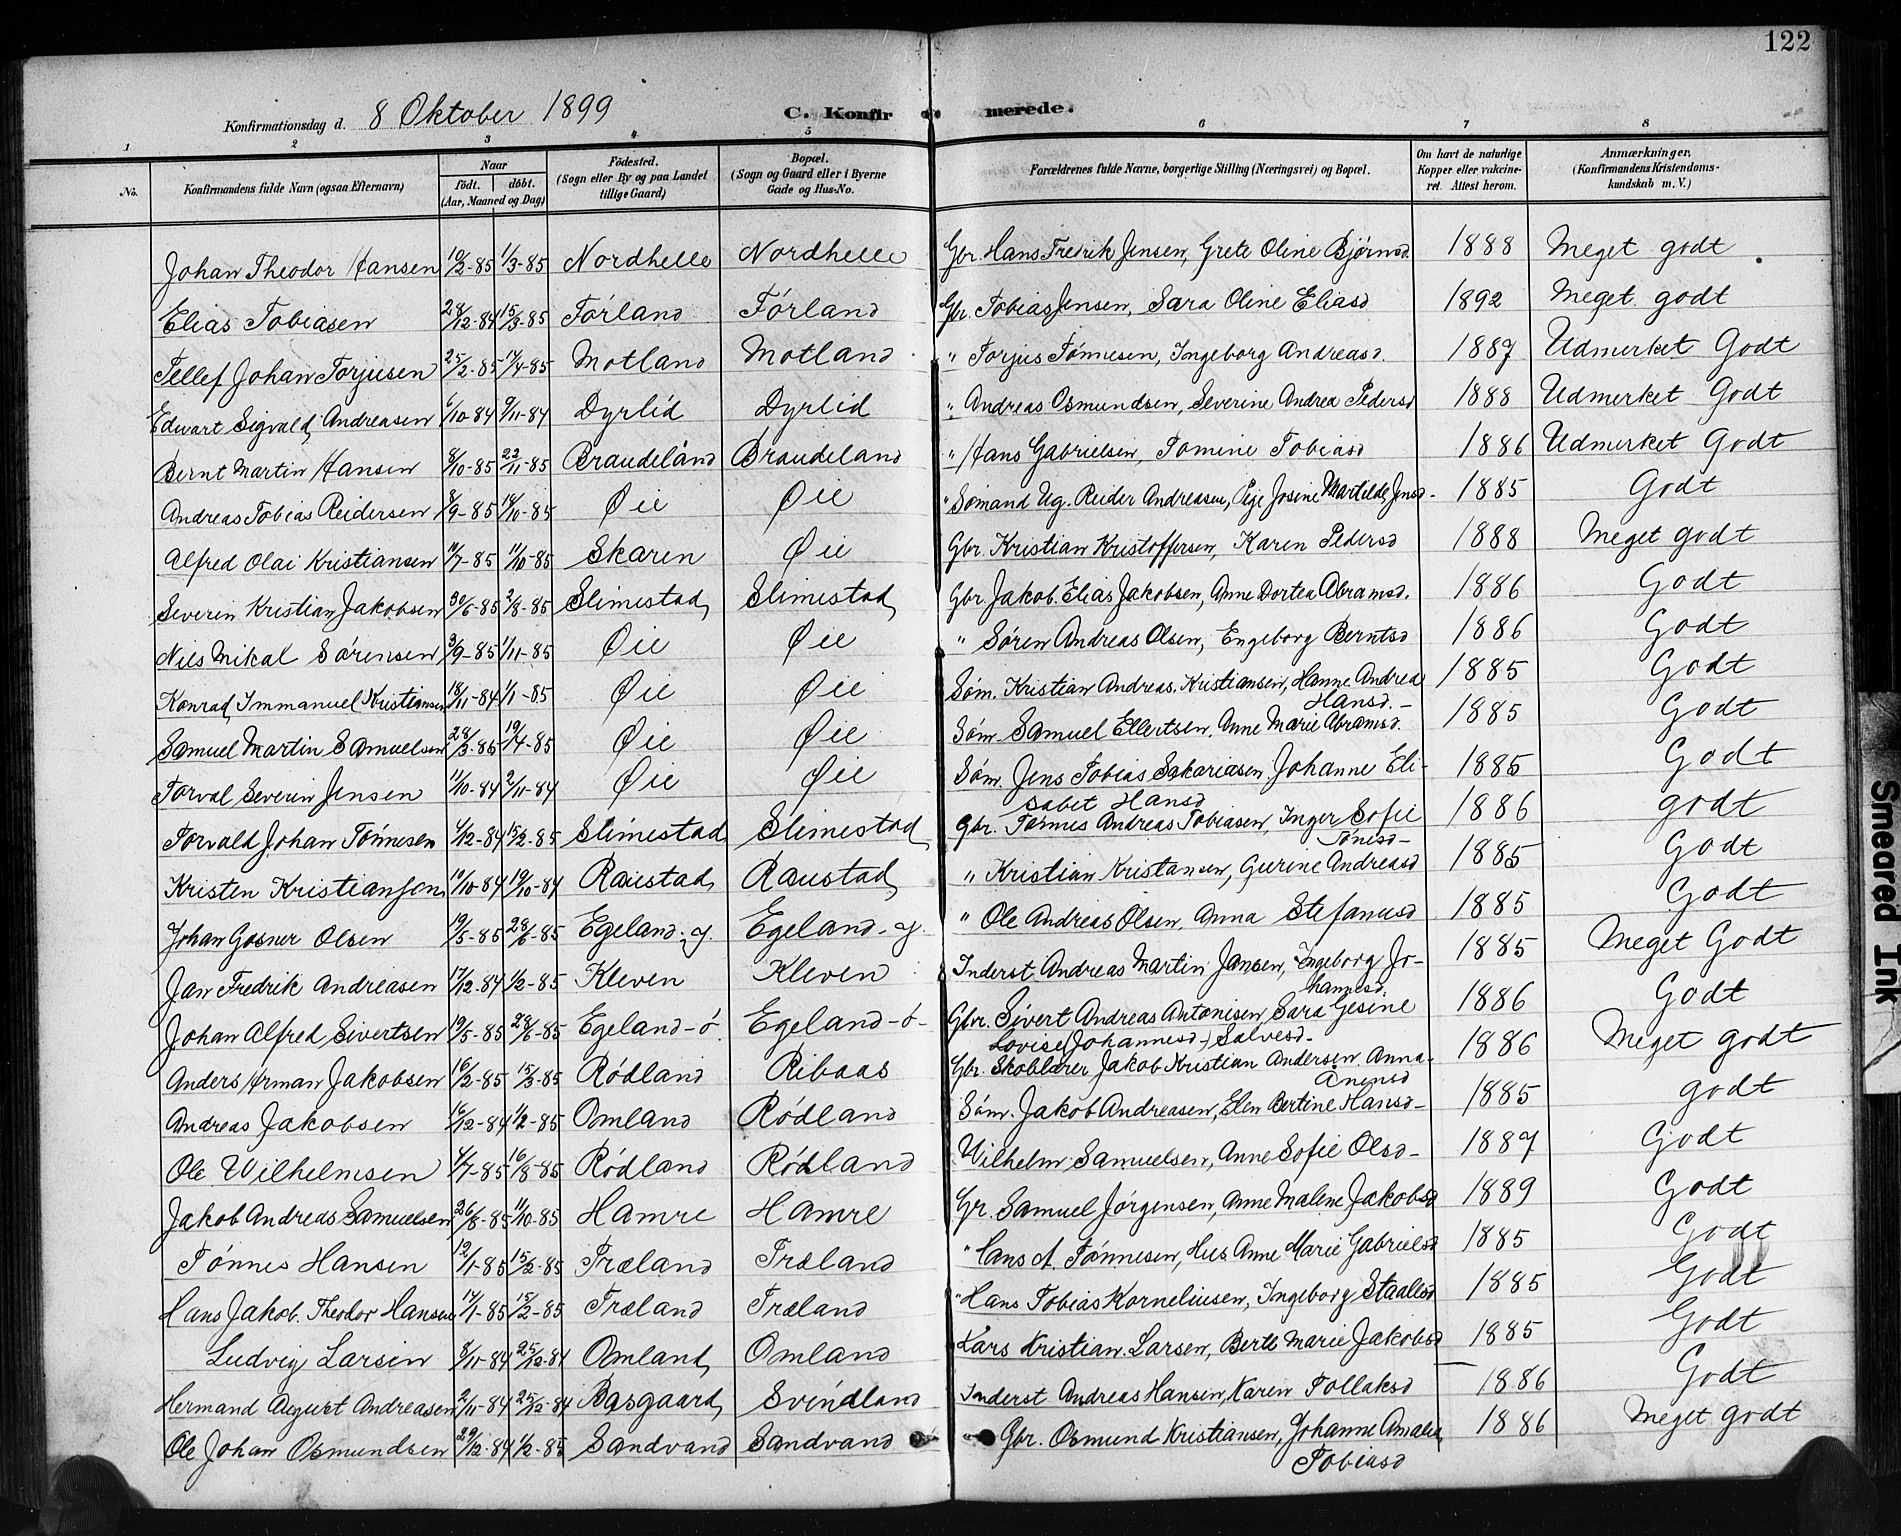 122
Konfirmationsdag d. 8 Oktober 1899 C. Konfirmerede.
1 2 3 4 5 6 7 8
No. Konfirmandens fulde Navn (ogsaa Efternavn) Naar født. døbt. (Aar, Maaned og Dag) Fødested. (Sogn eller By og paa Landet tillige Gaard) Bopæl. (Sogn og Gaard eller i Byerne Gade og Hus-No.) Forældrenes fulde Navne, borgerlige Stilling (Næringsvei) og Bopæl. Om havt de naturlige Kopper eller vakcineret. Attest herom. Anmærkninger. (Konfirmandens Kristendomskundskab m. V.)
Johan Theodor Hansen 10/2-85 1/3-85 Nordhelle Nordhelle Gbr. Hans Fredrik Jensen, Grete Oline Bjørnsd 1888 Meget godt
Elias Tobiasen 28/12-84 15/3-85 Førland Førland Gbr. Tobias Jensen, Sara Oline Eliasd 1892 Meget godt
Tellef Johan Torjusen 25/2-85 17/4-85 Motland Motland " Torjus Tønnesen, Ingeborg Andreasd. 1887 Udmerket Godt
Edvart Sigvald Andreasen 6/10-84 9/11-84 Dyrlid Dyrlid " Andreas Osmundsen, Severine Andrea Pedersd 1888 Udmerket Godt
Bernt Martin Hansen 8/10-85 22/11-85 Braudeland Braudeland " Hans Gabrielsen, Tomine Tobiasd 1886 Udmerket Godt
Andreas Tobias Reidersen 8/9-85 18/10-85 Øie Øie " Sømand Ug. Reider Andreasen, Pige Josine Martilde Jensd- 1885 Godt
Alfred Olai Kristiansen 11/7-85 11/10-85 Skaren Øie Gbr. Kristian Kristoffersen, Karen Pedersd 1888 Meget godt
Severin Kristian Jakobsen 30/6-85 2/8-85 Slimestad Slimestad Gbr. Jakob Elias Jakobsen, Anne Dortea Abramsd. 1886 Godt
Nils Mikal Sørensen 3/9-85 1/11-85 Øie Øie " Søren Andreas Olsen, Engeborg Berntsd 1886 Godt
Konrad Immanuel Kristiansen 18/11-84 1/1-85 Øie Øie Søm. Kristian Andreas Kristiansen, Hanne Andrea 1885 Godt
Hansd.-
Samuel Martin Samuelsen 28/3-85 19/4-85 Øie Øie Søm. Samuel Ellertsen, Anne Marie Abramsd. 1885 Godt
Torval Severin Jensen 11/10-84 2/11-84 Øie Øie Søm. Jens Tobias Sakariasen, Johanne Eli- 1885 Godt
sabet Hansd
Torvald Johan Tønnesen 4/12-84 15/2-85 Slimestad Slimestad Gbr. Tønnes Andreas Tobiasen, Inger Sofie 1886 godt
Tønesd-
Kristen Kristiansen 10/10-84 19/10-84 Raustad Raustad " Kristian Kristansen, Gurine Andreasd 1885 Godt
Johan Gosner Olsen 19/5-85 28/6-85 Egeland-y. Egeland-y. " Ole Andreas Olsen, Anna Stefanusd 1885 Godt
Jan Fredrik Andreasen 17/12-84 1/2-85 Kleven Kleven Inderst Andreas Martin Jansen, Ingeborg Jo- 1885 Meget Godt
hannesd.
Johan Alfred Sivertsen 19/5-85 28/6-85 Egeland-ø. Egeland-ø- Gbr. Sivert Andreas Antonisen, Sara Gesine 1886 Godt
Lovise Johannesd-, Salvesd-
Anders Herman Jakobsen 16/2-85 15/3-85 Rødland Ribaas Gbr. Skolelærer Jakob Kristian Andersen, Anna 1886 Meget godt
Anensd
Andreas Jakobsen 16/12-84 1/2-85 Omland Rødland Søm. Jakob Andreasen, Elen Bertine Hansd- 1885 godt
Ole Wilhelmsen 4/7-85 16/8-85 Rødland Rødland Wilhelm Samuelsen, Anne Sofie Olsd- 1887 Godt
Jakob Andreas Samuelsen 26/8-85 11/10-85 Hamre Hamre Gr. Samuel Jørgensen, Anne Malene Jakobsd 1889 Godt
Tønnes Hansen 12/1-85 15/2-85 Træland Træland " Hans A. Tønnesen, Hus. Anne Marie Gabrielsd 1885 Godt
Hans Jakob Theodor Hansen 17/1-85 15/2-85 Træland Træland " Hans Tobias Korneliusen, Ingeborg Staalesd 1885 Godt
Ludvig Larsen 8/11-84 25/12-84 Omland Omland Lars Kristian Larsen, Berte Marie Jakobsd 1885 Godt
Hermand August Andreasen 2/11-84 25/12-84 Aasgaard Svindland Inderst Andreas Hansen, Karen Tollaksd 1886 Godt
Ole Johan Osmundsen 29/12-84 1/2-85 Sandvand Sandvand Gbr. Osmund Kristiansen, Johanne Amalia 1886 Meget godt
Tobiasd
Smeared Ink